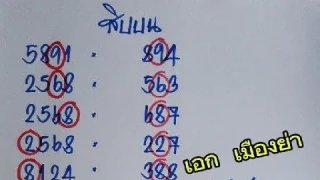 สิบบน
5891 · 894
2568 · 563
2568 · 687
2568 · 227
8124 · 388
เอก เมืองย่า